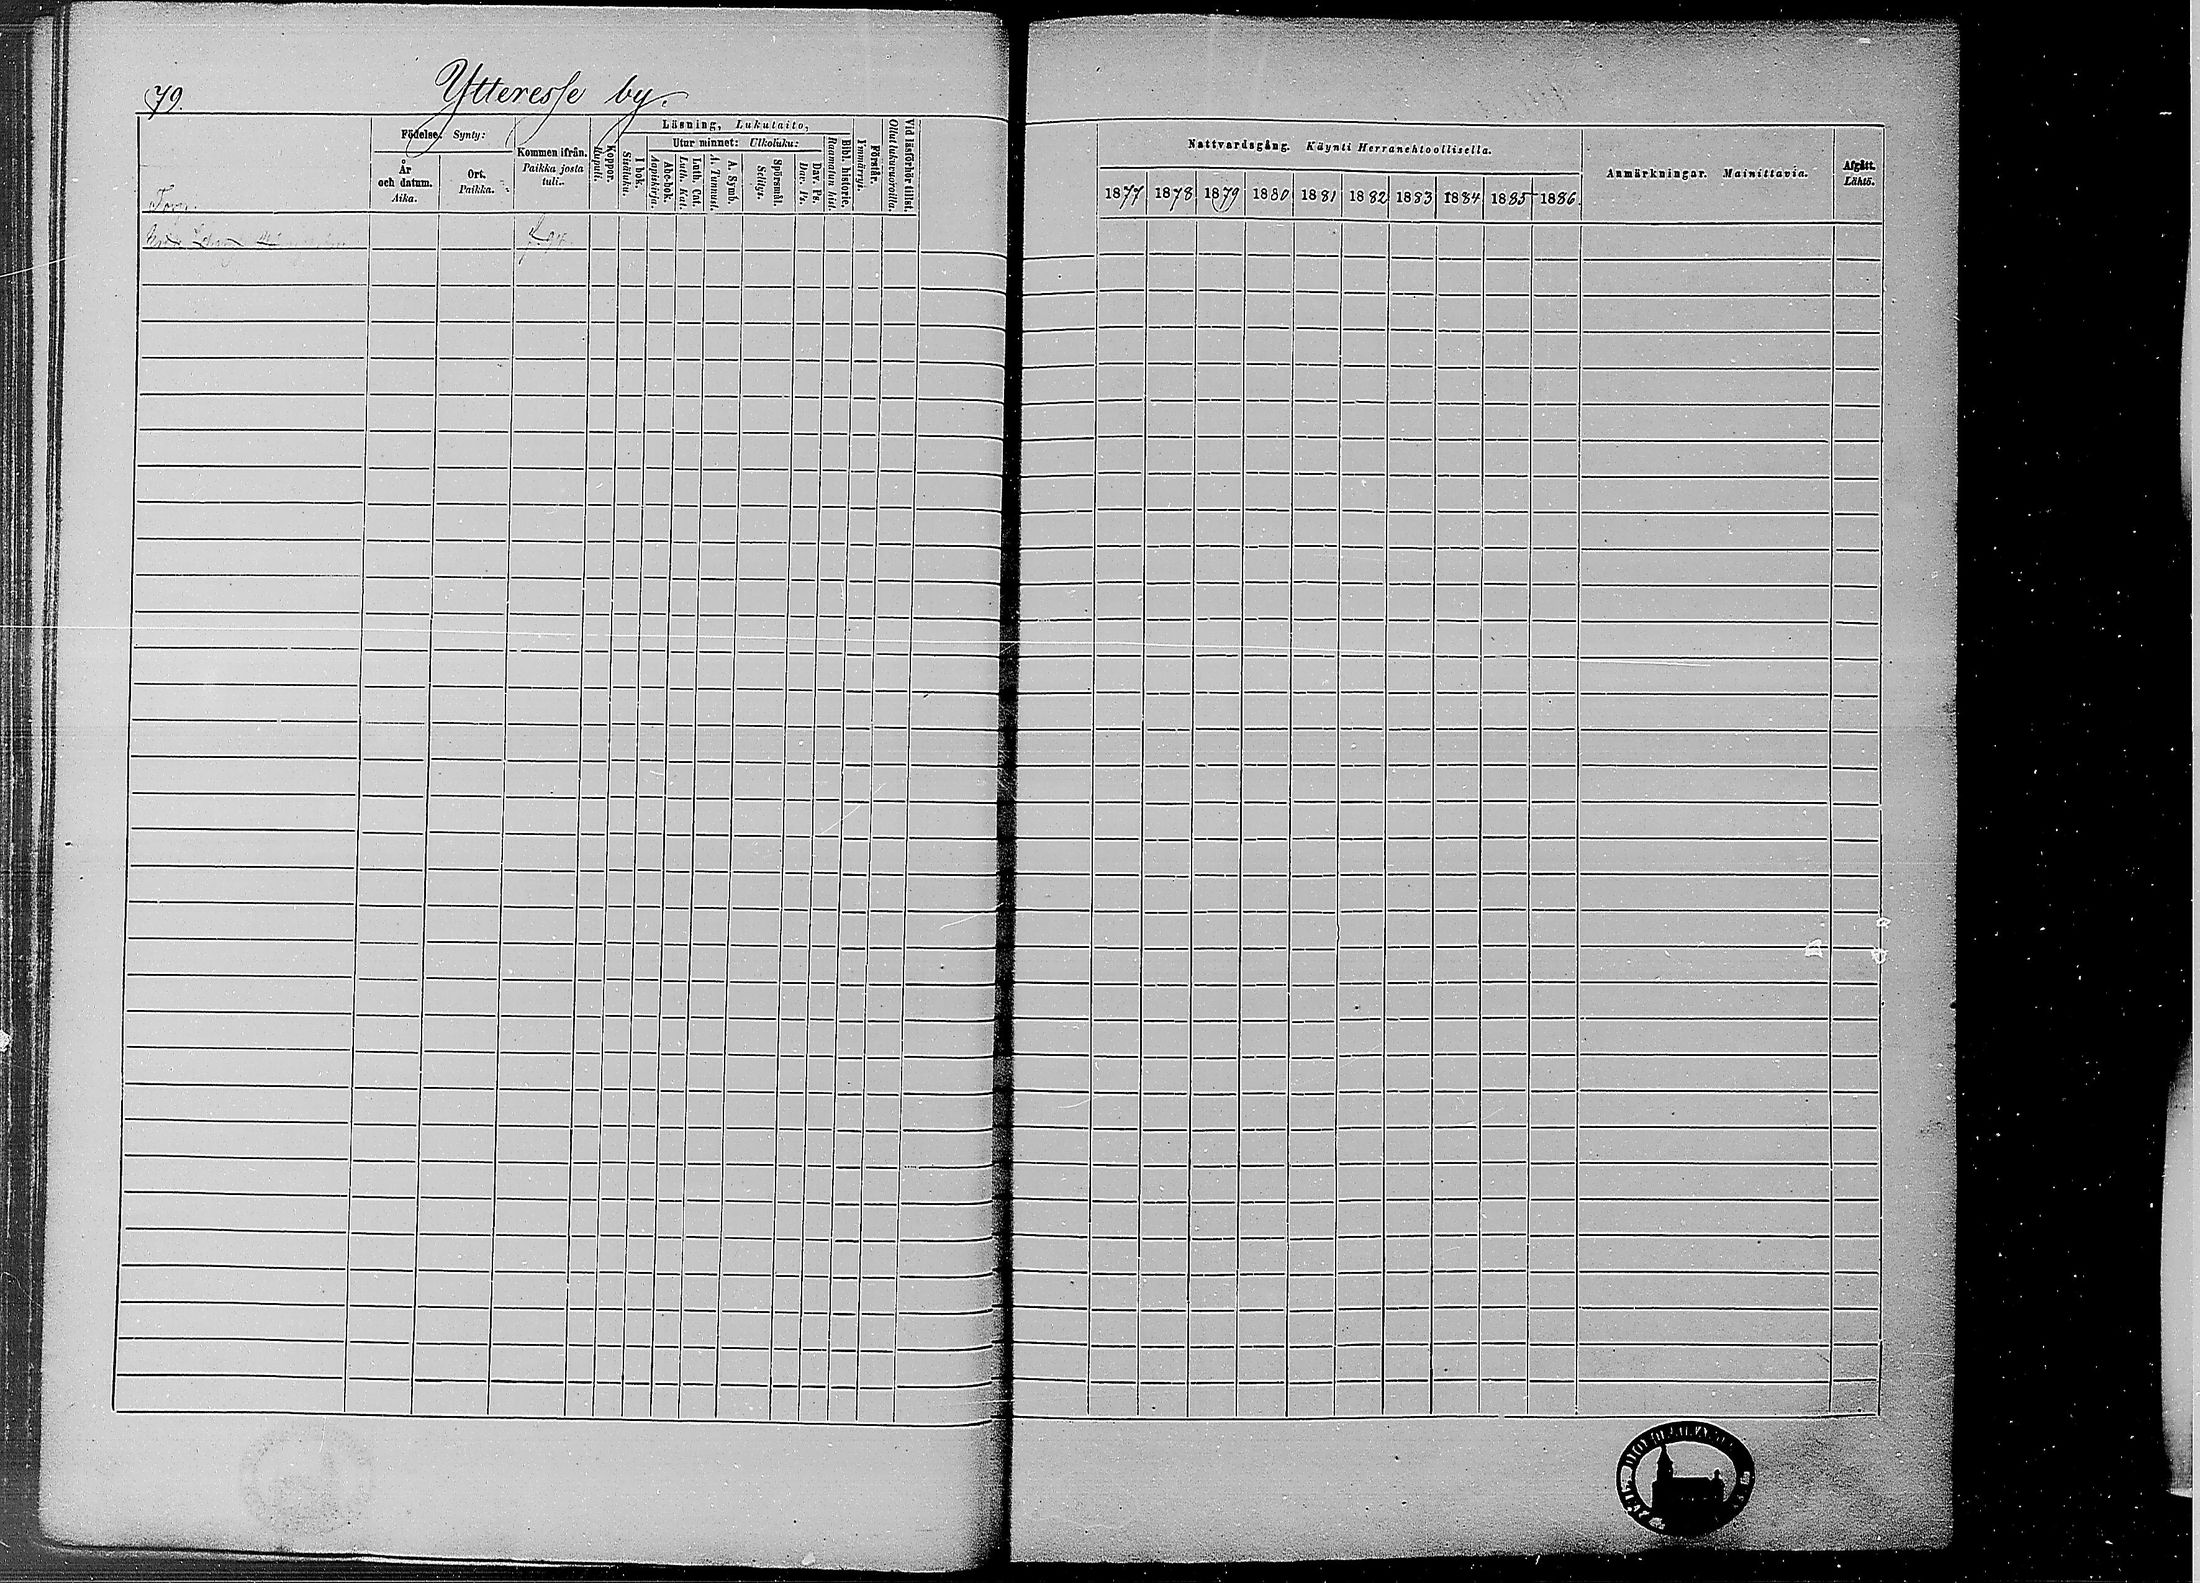 79.
Ytteresse by.
Födelse: Synty:
År och datum. Aika.
Ort. Paikka.
Kommen ifrån. Paikka josta tuli.
Koppor. Rupuli.
Läsning, Lukutaito,
I bok. Sisäluku.
Utur minnet: Ulkoluku:
Abc-bok. Aapiskirja.
Luth. Cat. Luth. Kat.
A. Symb. A Tunnust.
Spörsmål. Selitys.
Dav. Ps. Dav. Ps.
Bibl. historie. Raamatun hist.
Förstår. Ymmärrys.
Vid läsförhör tillst. Ollut lukuvuoroilla.
Torp.
Nattvardsgång. Käynti Herranehtoollisella.
1877 1878 1879 1880 1881 1882 1883 1884 1885 1886
Anmärkningar. Mainittavia.
Afgått. Lähtö.